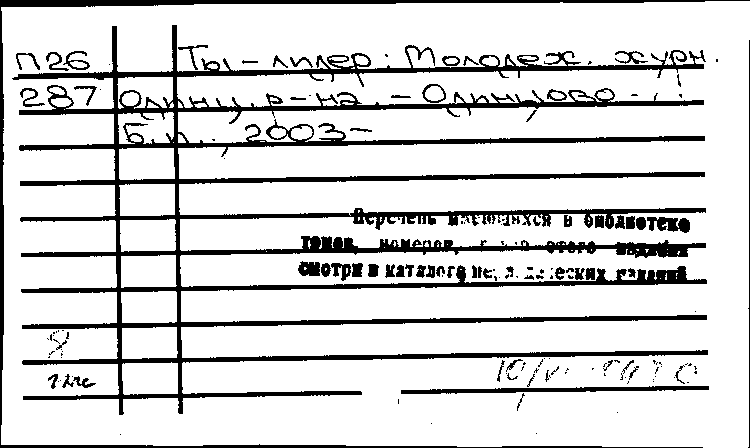 П26 Ты – лидер: Молодеж. журн.
287 Одинц. р-на. – Одинцово :
Б. и., 2003–
Перечень имеющихся в библиотеке
томов, номеров, этого издания
смотри в каталоге периодических изданий
8
1 экс
10/VI